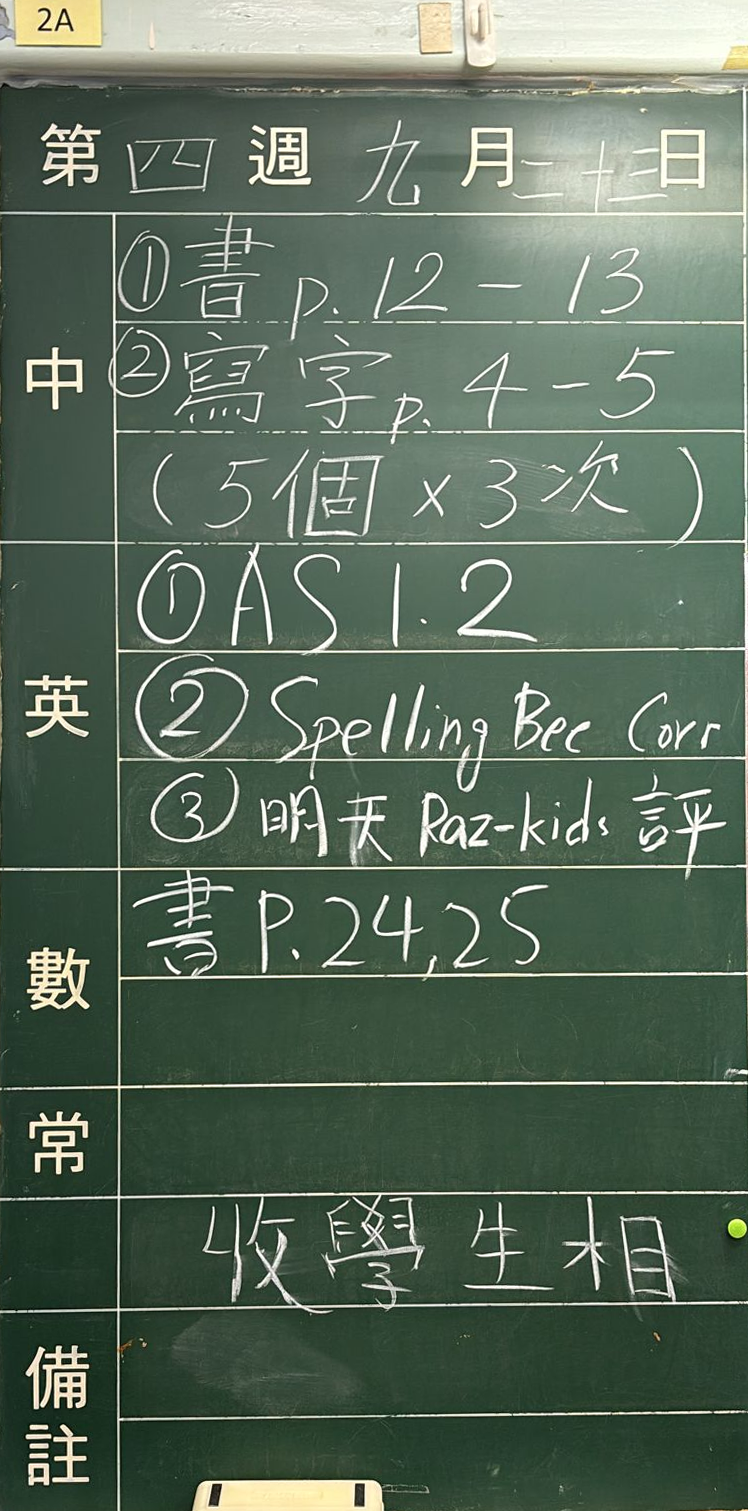 2A
第四週九月二十三日
中
①書 p. 12 - 13
②寫字 p. 4 - 5
(5個 x 3次)
英
①AS 1.2
② Spelling Bee Corr
③ 明天 Raz-kids 評
數
書 P. 24, 25
常
收學生相
備註